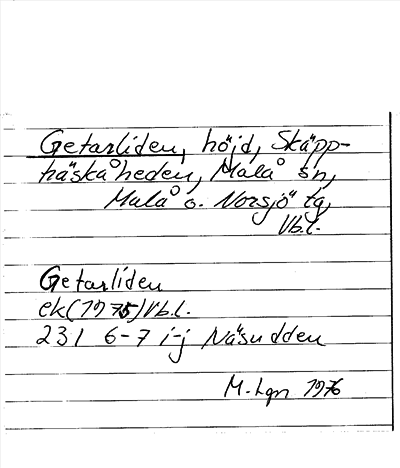 Getarliden, höjd, Skäpp-
träskåheden, Malå sn,
Malå o. Norsjö tg,
Vb.l.
Getarliden
ek (1975) Vb.l.
231 6-7 i-j Näsudden
M. Lgn 1976